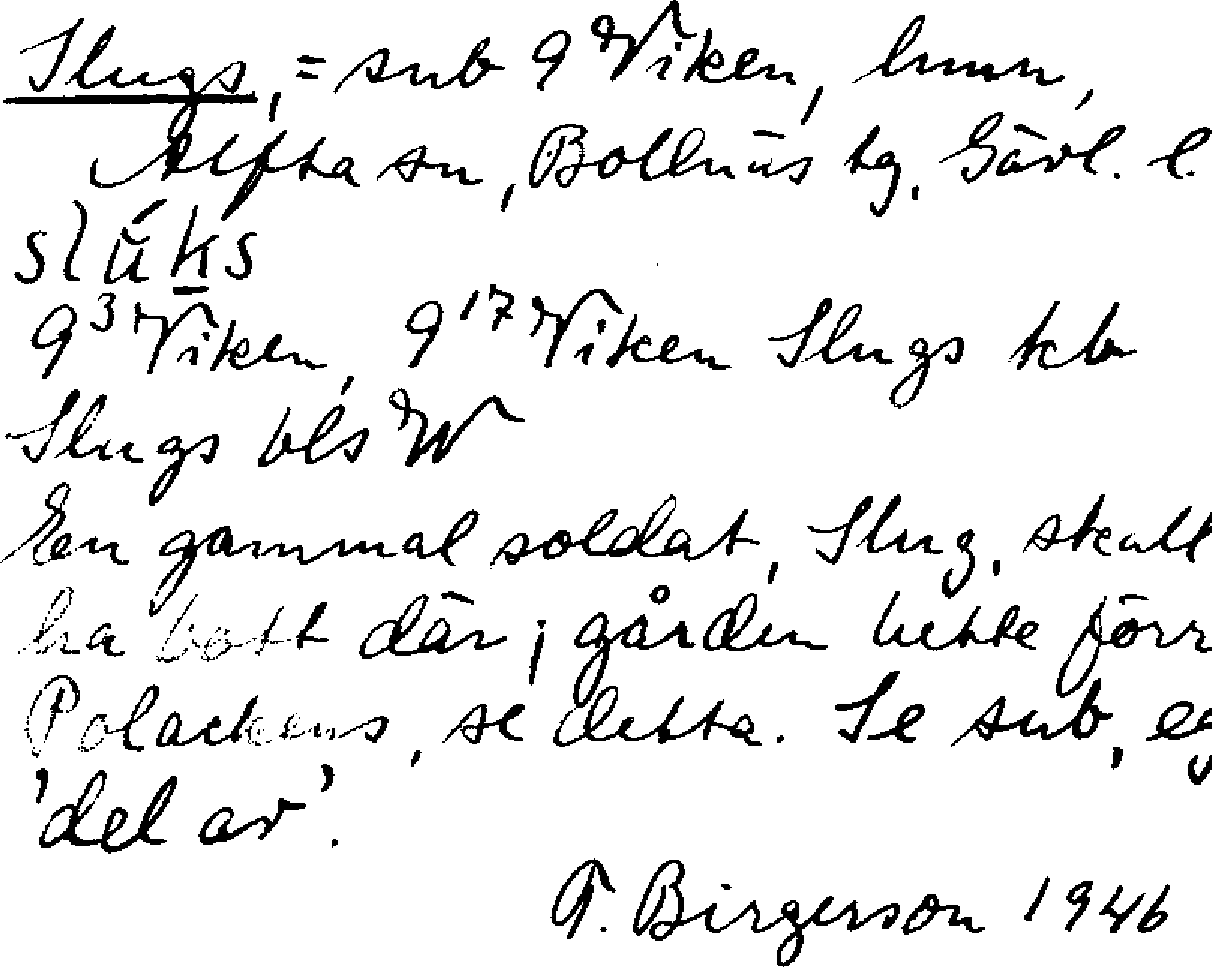 Slugs, = sub 9 Viken, hmn,
Alfta sn, Bollnäs tg, Gävl. l.
slúks
9³ Viken, 9¹⁷ Viken Slugs kb
Slugs bls W
En gammal soldat, Slug, skall
ha bott där; gården hette förr
Polackens, se detta. Se sub, eg
'del av'.
T. Birgerson 1946